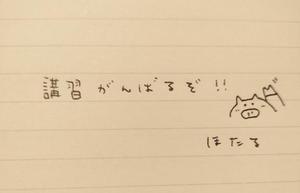 講習がんばるぞ!!
ほたる